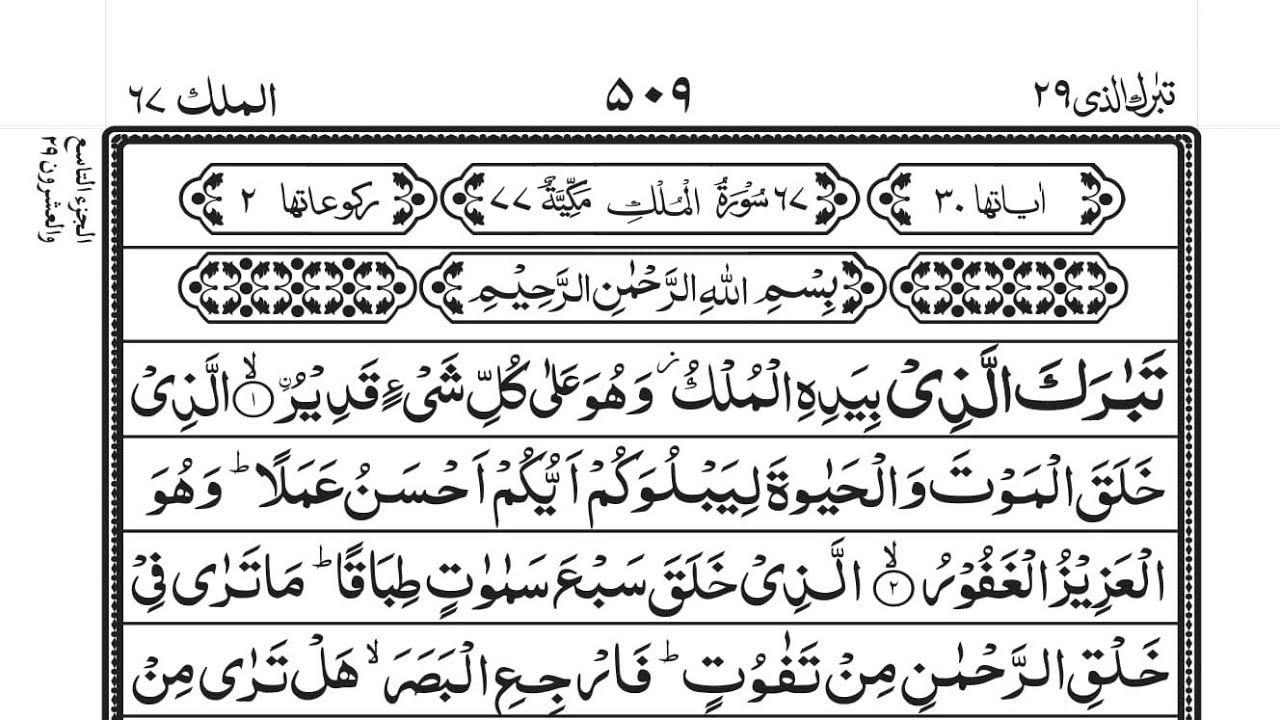 تبٰرك الذی ٢٩
٥٠٩
الملك ٦٧
الجزء التاسع
والعشرون ٢٩
اٰیاتها ٣٠
٦٧ سُوْرَةُ الْمُلْكِ مَكِّیَّةٌ ٧٧
ركوعاتها ٢
بِسْمِ اللهِ الرَّحْمٰنِ الرَّحِیْمِ
تَبٰرَكَ الَّذِیْ بِیَدِهِ الْمُلْكُ ز وَهُوَ عَلٰی كُلِّ شَیْءٍ قَدِیْرُ ۨ ۙ﴿١﴾ الَّذِیْ
خَلَقَ الْمَوْتَ وَالْحَیٰوةَ لِیَبْلُوَكُمْ اَیُّكُمْ اَحْسَنُ عَمَلًا ؕ وَهُوَ
الْعَزِیْزُ الْغَفُوْرُ ۙ﴿٢﴾ الَّذِیْ خَلَقَ سَبْعَ سَمٰوٰتٍ طِبَاقًا ؕ مَا تَرٰی فِیْ
خَلْقِ الرَّحْمٰنِ مِنْ تَفٰوُتٍ ؕ فَارْجِعِ الْبَصَرَ ۙ هَلْ تَرٰی مِنْ